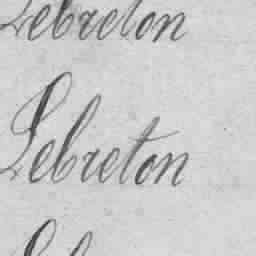 Lebreton
Lebreton